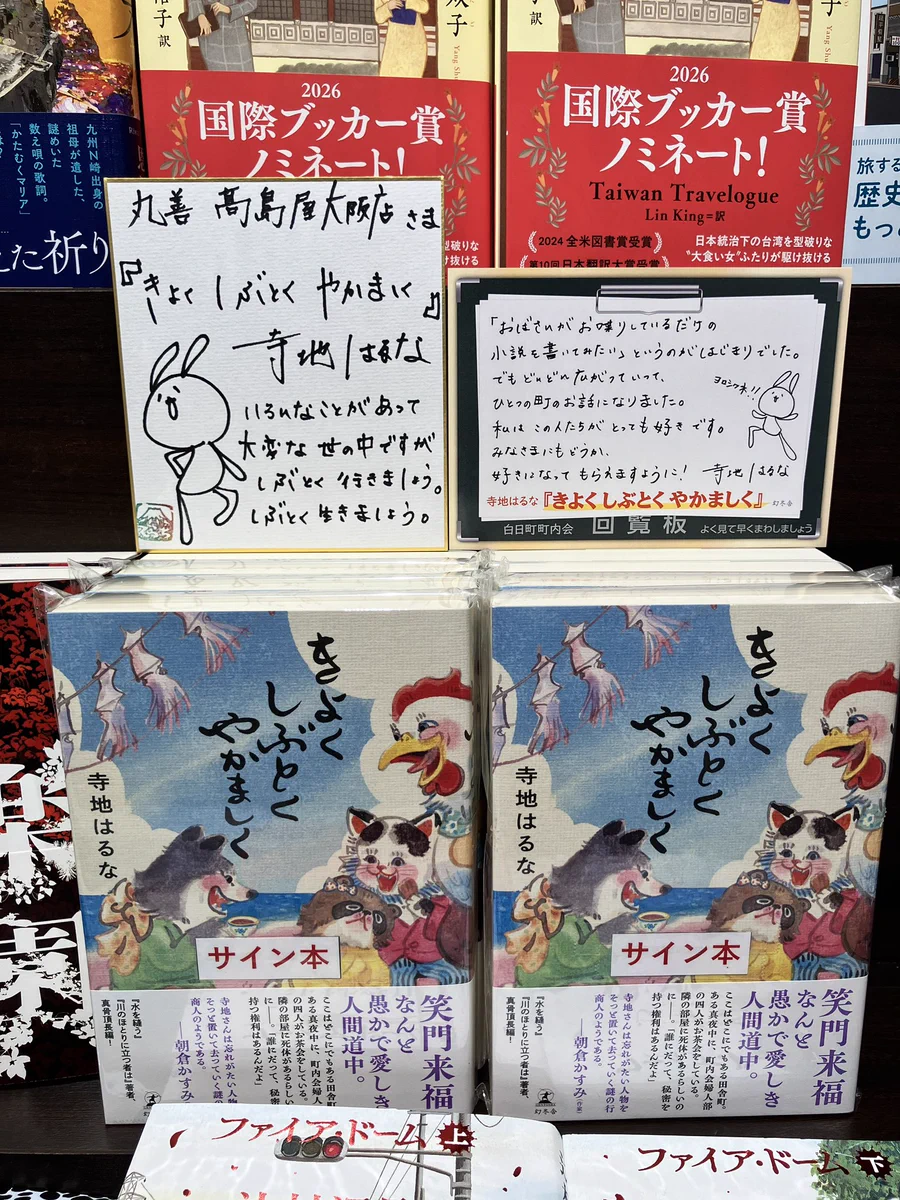 子訳
Yang Shu
2026
国際ブッカー賞
ノミネート!
2026
国際ブッカー賞
ノミネート!
Taiwan Travelogue
Lin King=訳
2024 全米図書賞受賞
第10回 日本翻訳大賞受賞
日本統治下の台湾を型破りな
"大食い女"ふたりが駆け抜ける
九州N崎出身の
祖母が遺した、
謎めいた
数え唄の歌詞。
「かたむくマリア」
た祈り
旅する
歴史
もっと
丸善 高島屋大阪店さま
『きよく しぶとく やかましく』
寺地はるな
いろんなことがあって
大変な世の中ですが
しぶとく 行きましょう。
しぶとく 生きましょう。
「おばさんがお喋りしているだけの
小説を書いてみたい」というのがはじまりでした。
でもどんどん広がっていって、
ひとつの町のお話になりました。
私は この人たちが とっても好きです。
みなさまにもどうか、
好きになって もらえますように! 寺地はるな
ヨロシクネ!!
寺地はるな『きよくしぶとくやかましく』 幻冬舎
白日町町内会 回覧板 よく見て早くまわしましょう
きよく
しぶとく
やかましく
寺地はるな
サイン本
笑門来福
なんと
愚かで愛しき
人間道中。
ここはどこにでもある田舎町。
ある真夜中に、町内会婦人部
の四人がお茶会をしている。
隣の部屋に死体があるらしいの
に――。「誰にだって、秘密を
持つ権利はあるんだよ」
寺地さんは忘れがたい人物を
そっと置いて去っていく謎の行
商人のようである。
――朝倉かすみ(作家)
『水を縫う』
『川のほとりに立つ者は』著者、
真骨頂長編!
幻冬舎
きよく
しぶとく
やかましく
寺地はるな
サイン本
笑門来福
なんと
愚かで愛しき
人間道中。
ここはどこにでもある田舎町。
ある真夜中に、町内会婦人部
の四人がお茶会をしている。
隣の部屋に死体があるらしいの
に――。「誰にだって、秘密を
持つ権利はあるんだよ」
寺地さんは忘れがたい人物を
そっと置いて去っていく謎の行
商人のようである。
――朝倉かすみ(作家)
『水を縫う』
『川のほとりに立つ者は』著者、
真骨頂長編!
幻冬舎
ファイア・ドーム 上
ファイア・ドーム 下